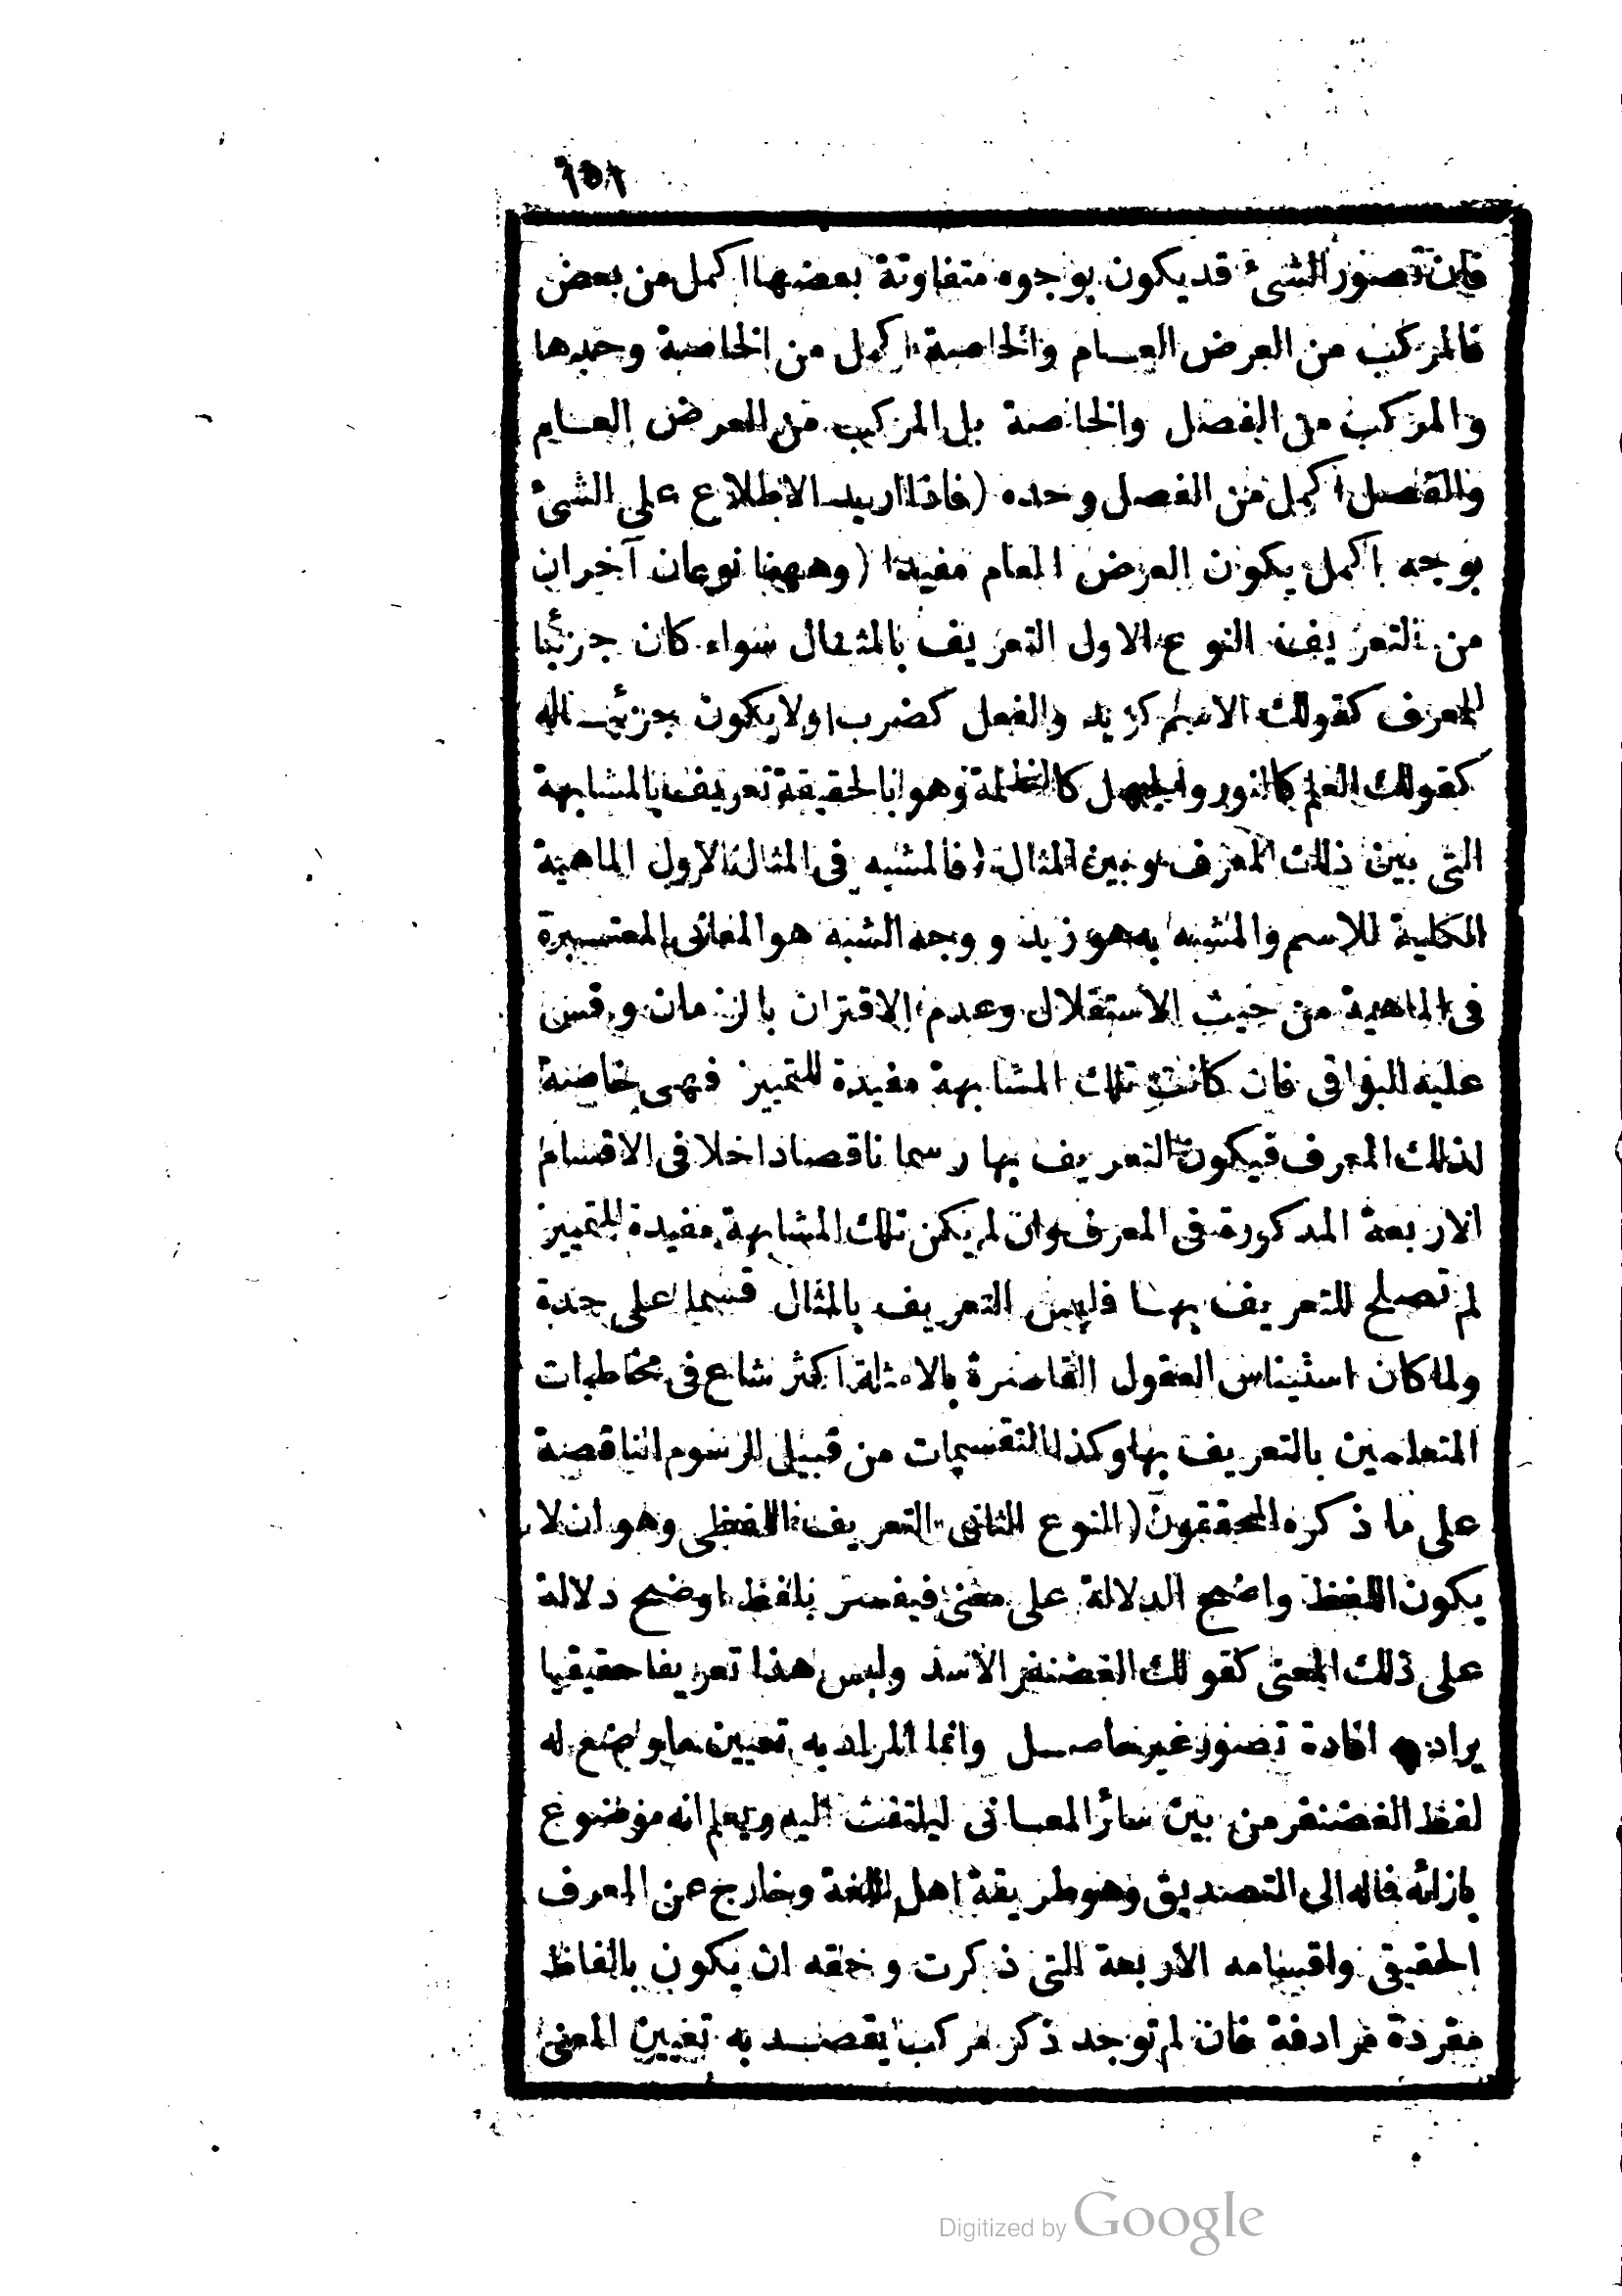 فان تصور الشئ قد يكون بوجوه متفاوتة بعضها اكمل من بعض
فالمركب من العرض العام والخاصة اكمل من الخاصة وحدها
والمركب من الفصل والخاصة بل المركب من العرض العام
والفصل اكمل من الفصل وحده (فاذا اريد الاطلاع على الشئ
بوجه اكمل يكون العرض العام مفيدا (وههنا نوعان آخران
من التعريف النوع الاول التعريف بالمثال سواء كان جزئيا
للمعرف كقولك الاسم كزيد والفعل كضرب اولا يكون جزئيا له
كقولك العلم كالنور والجهل كالظلمة وهو بالحقيقة تعريف بالمشابهة
التى بين ذلك المعرف وبين المثال (فالمشبه فى المثال الاول الماهية
الكلية للاسم والمشبه به هو زيد ووجه الشبه هو المعانى المعتبرة
فى الماهية من حيث الاستقلال وعدم الاقتران بالزمان وقس
عليه البواقى فان كانت تلك المشابهة مفيدة للتمييز فهى خاصة
لذلك المعرف فيكون التعريف بها رسما ناقصا داخلا فى الاقسام
الاربعة المذكورة فى المعرف وان لم يكن تلك المشابهة مفيدة للتمييز
لم تصلح للتعريف بها فليس التعريف بالمثال قسما على حدة
ولما كان استيناس العقول القاصرة بالامثلة اكثر شاع فى مخاطبات
المتعلمين بالتعريف بها وكذا التقسيمات من قبيل الرسوم الناقصة
على ما ذكره المحققون (النوع الثانى التعريف اللفظى وهو ان لا
يكون اللفظ واضح الدلالة على معنى فيفسر بلفظ اوضح دلالة
على ذلك المعنى كقولك الغضنفر الاسد وليس هذا تعريفا حقيقيا
يراد به افادة تصور غير حاصل وانما المراد به تعيين ما وضع له
لفظ الغضنفر من بين سائر المعانى ليلتفت اليه ويعلم انه موضوع
بازائه فماله الى التصديق وهو طريقة اهل اللغة وخارج عن المعرف
الحقيقى واقسامه الاربعة التى ذكرت وحقه ان يكون بالفاظ
مفردة مرادفة فان لم توجد ذكر مركب يقصد به تعيين المعنى
Digitized by Google